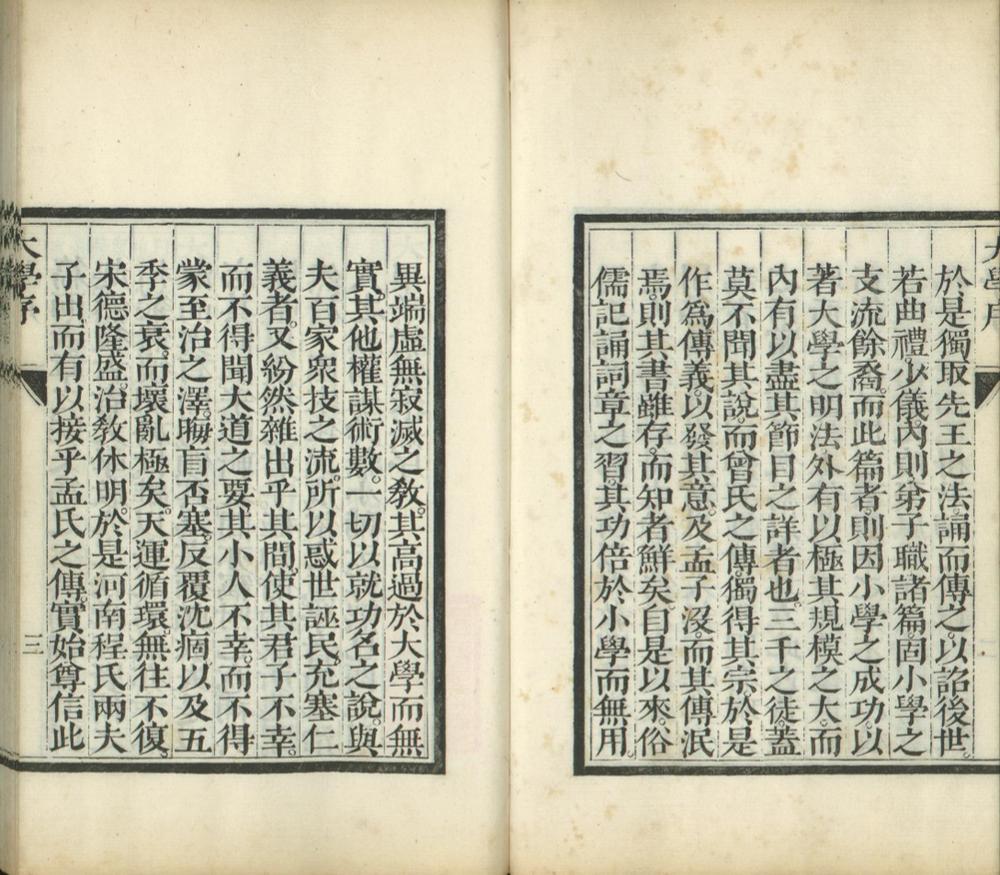 大學序
於是獨取先王之法。誦而傳之。以詔後世。
若曲禮。少儀。內則。弟子職諸篇。固小學之
支流餘裔。而此篇者。則因小學之成功。以
著大學之明法。外有以極其規模之大。而
內有以盡其節目之詳者也。三千之徒。蓋
莫不聞其說。而曾氏之傳。獨得其宗。於是
作爲傳義。以發其意。及孟子沒。而其傳泯
焉。則其書雖存。而知者鮮矣。自是以來。俗
儒記誦詞章之習。其功倍於小學而無用。
異端虛無寂滅之敎。其高過於大學而無
實。其他權謀術數。一切以就功名之說。與
夫百家衆技之流。所以惑世誣民。充塞仁
義者。又紛然雜出乎其間。使其君子不幸。
而不得聞大道之要。其小人不幸。而不得
蒙至治之澤。晦盲否塞。反覆沈痼。以及五
季之衰。而壞亂極矣。天運循環。無往不復。
宋德隆盛。治敎休明。於是河南程氏兩夫
子出。而有以接乎孟氏之傳。實始尊信此
大學序
三